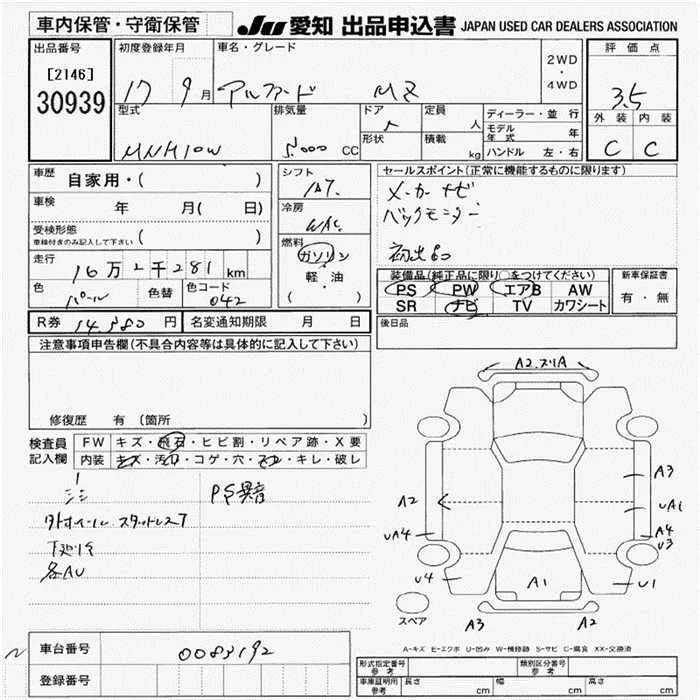 車内保管・守衛保管
JU 愛知 出品申込書 JAPAN USED CAR DEALERS ASSOCIATION
出品番号
[2146]
30939
初度登録年月
17 9月
車名・グレード
アルファード MZ
2WD
・
4WD
評価点
3.5
外装 内装
C C
型式
MNH10W
排気量
3,000 CC
ドア
5
形状
定員 人
積載 kg
ディーラー・並行
モデル年式 年
ハンドル 左・右
車歴 自家用・( )
車検 年 月( 日)
受検形態
車検付きのみ記入して下さい ( )
走行 16万2千281km
色 パール 色替 色コード 042
シフト
IAT.
冷房
WAC
燃料
ガソリン
軽・油
( ・ )
セールスポイント(正常に機能するものに限ります)
メーカーナビ
バックモニター
初出品
装備品(純正品に限り○をつけてください)
PS PW エアB AW
SR ナビ TV カワシート
新車保証書
有・無
R券 14,980円 名変通知期限 月 日
後日品
注意事項申告欄(不具合内容等は具体的に記入して下さい)
修復歴 有 (箇所 )
検査員記入欄
FW キズ・飛石・ヒビ割・リペア跡・X要
内装 キズ・汚れ・コゲ・穴・・キレ・破レ
PS異音
外ホイール スタッドレスT
下廻りサ
各AU
A2.スリA
A2
UA4
U4
A3
UA1
A4
U3
U1
A1
A3
A2
スペア
A-キズ E-エクボ U-凹み W-補修跡 S-サビ C-腐食 XX-交換済
車台番号 0083192
登録番号
形式指定番号
参考
類別区分番号
参考
車庫証明用
参考
長さ cm 幅 cm 高さ cm